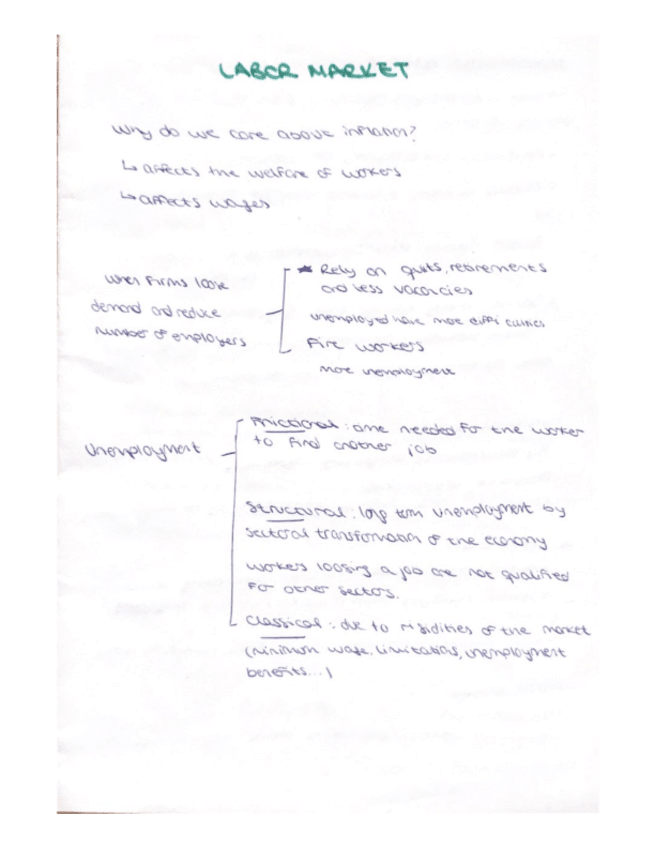 LABOR MARKET
Why do we care about inflation?
↳ affects the welfare of workers
↳ affects wages
When firms loose
demand and reduce
number of employers
★ Rely on quits, retirements
and less vacancies
unemployed have more difficulties
Fire workers
more unemployment
Unemployment
Frictional: time needed for the worker
to find another job
Structural: long term unemployment by
sectoral transformation of the economy
workers loosing a job are not qualified
for other sectors.
Classical: due to rigidities of the market
(minimum wage, limitations, unemployment
benefits...)